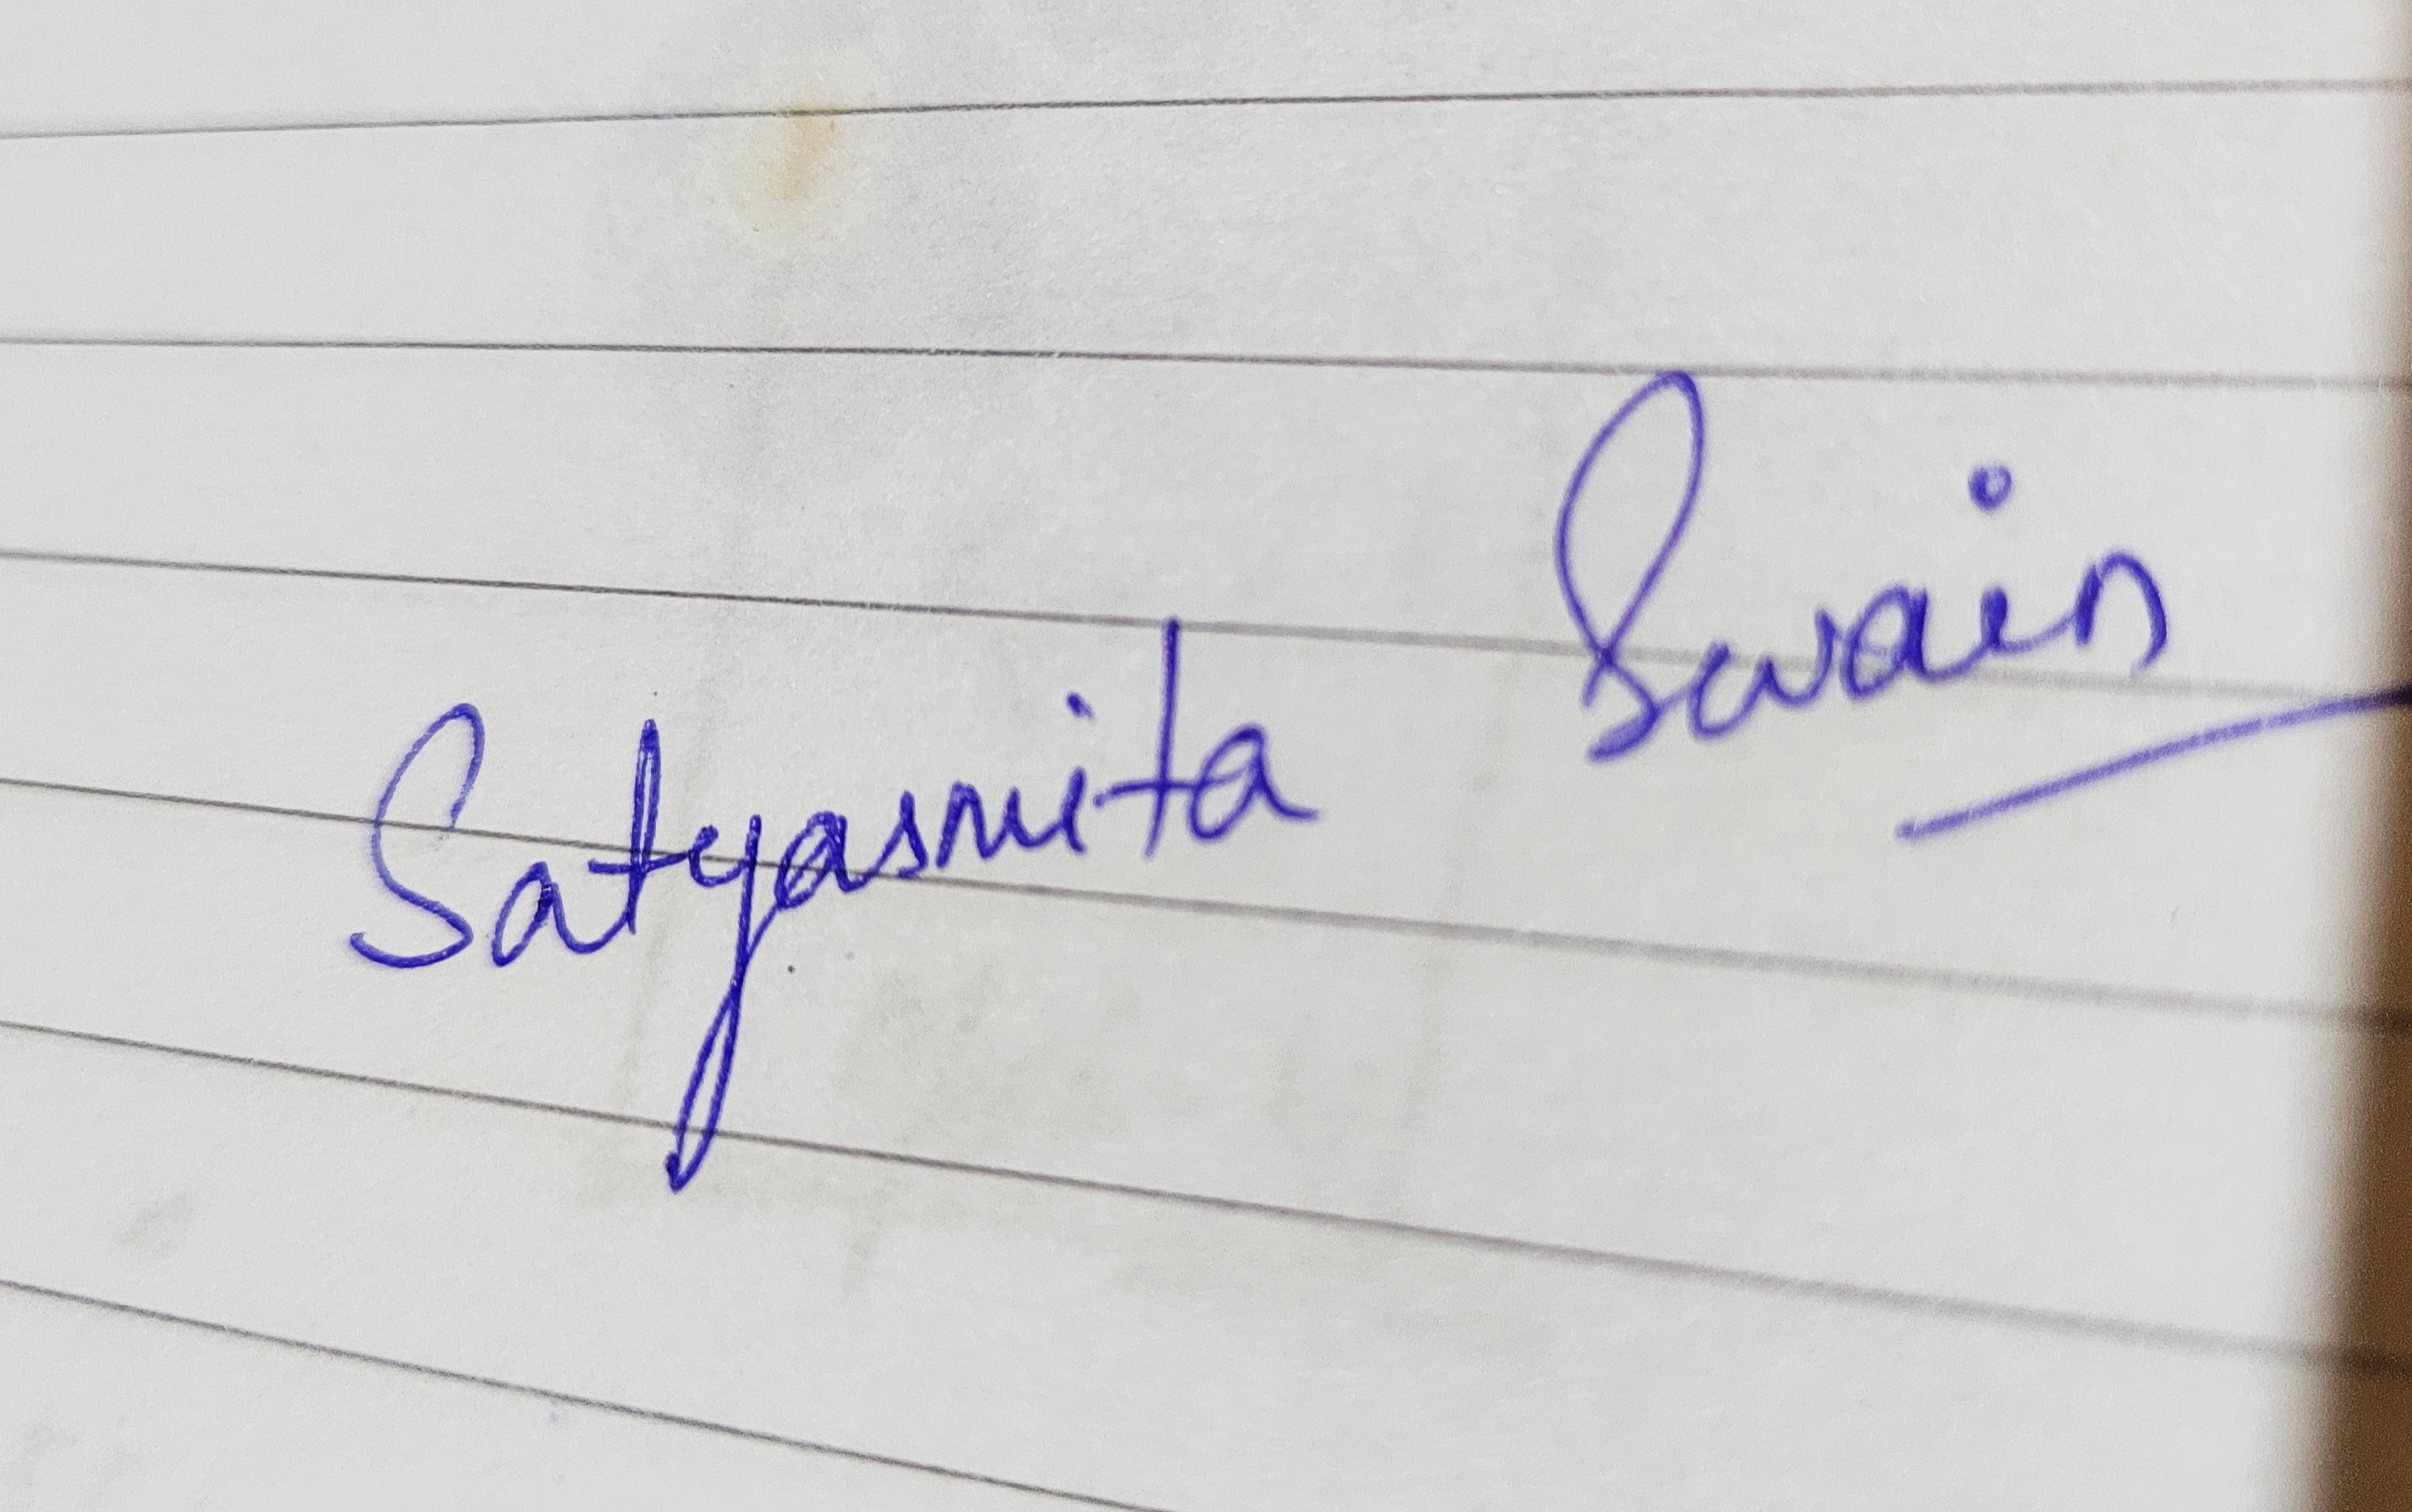 Satyasmita Swain